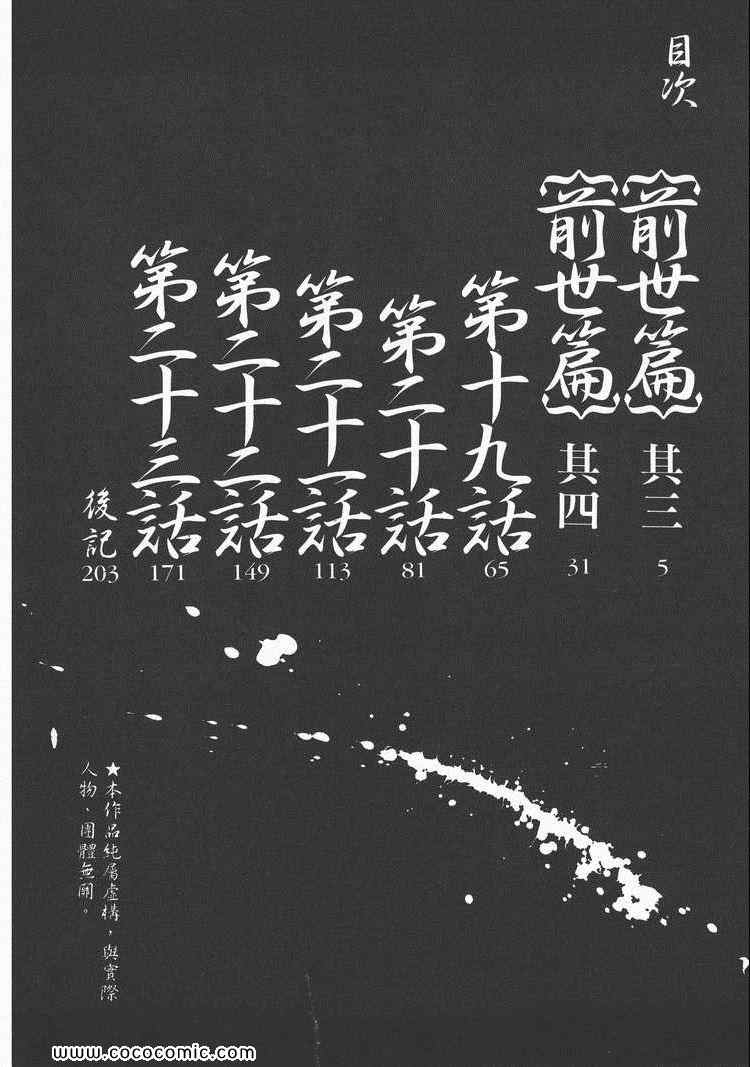 目次
﹛前世篇﹜其三
5
﹛前世篇﹜其四
31
第十九話
65
第二十話
81
第二十一話
113
第二十二話
149
第二十三話
171
後記
203
★本作品純屬虛構，與實際
人物、團體無關。
www.cococomic.com